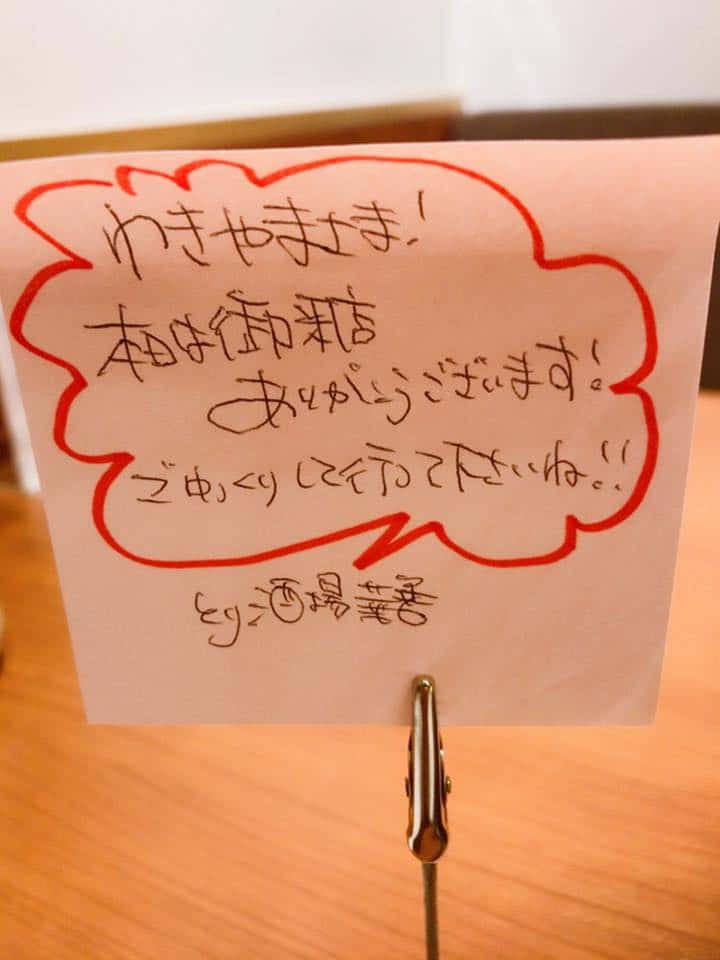 わきやまさま!
本日は御来店
ありがとうございます!
ごゆっくりして行って下さいね!!
とりこ酒場 華善